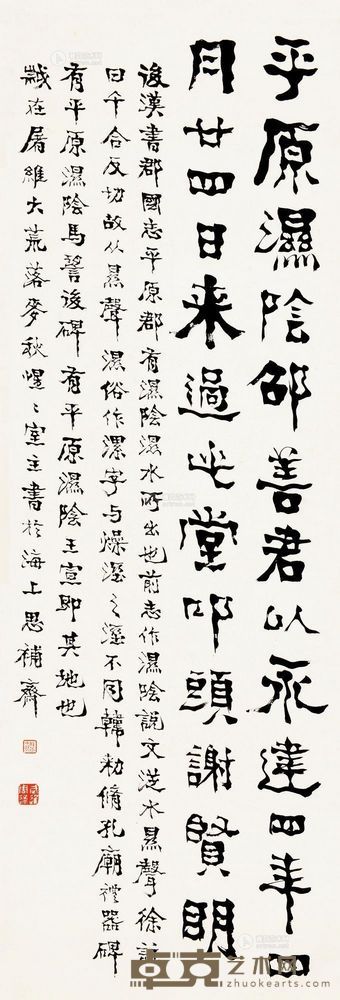 平原濕陰邵善君以永建四年四
月廿四日来過此堂叩頭謝賢明
後漢書郡國志平原郡有濕陰濕水所出也前志作濕陰說文從水㬎聲徐
曰千合反切故从㬎聲濕俗作漯字与燥溼之溼不同韓勑脩孔廟禮器碑
有平原濕陰馬瑴後碑有平原濕陰王宣即其地也
歲在屠維大荒落麥秋惺〻室主書於海上思補齋
卓克艺术网
zhuokearts.com